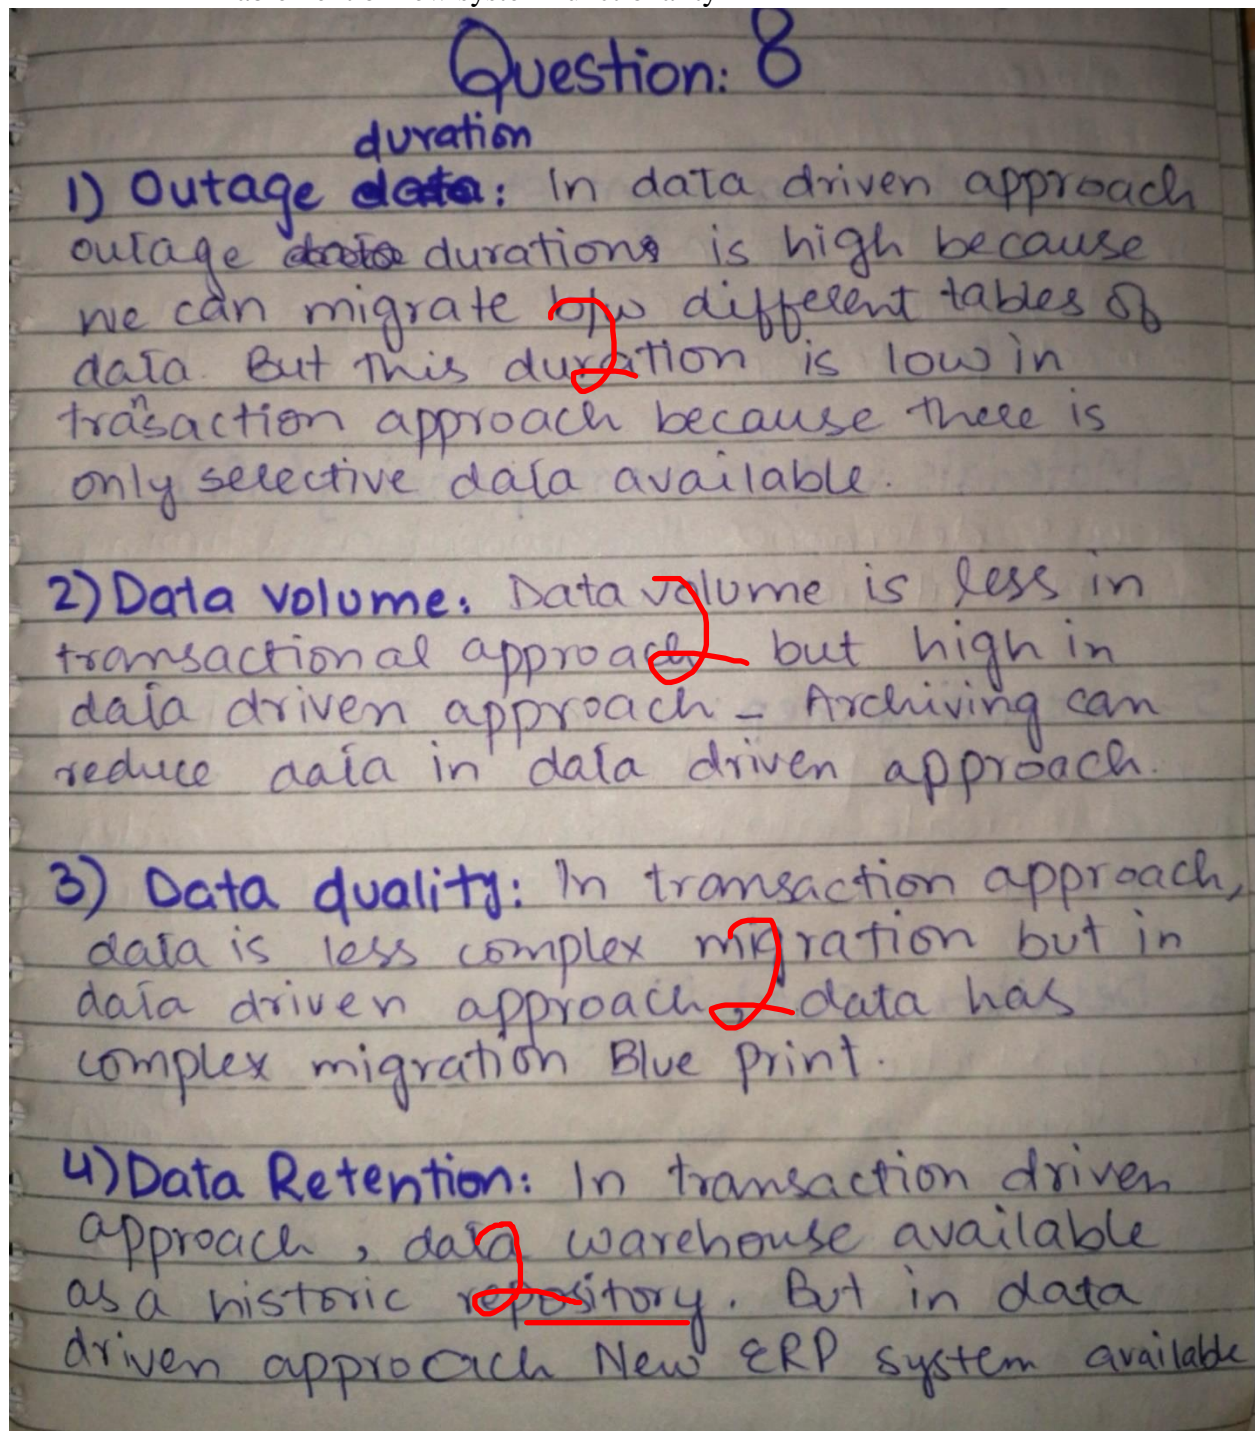 Question: 8
duration
1) Outage data: In data driven approach
outage data durations is high because
we can migrate b/w different tables of
data. But this duration is low in
transaction approach because there is
only selective data available.
2) Data volume: Data volume is less in
transactional approach but high in
data driven approach - Archiving can
reduce data in data driven approach.
3) Data quality: In transaction approach,
data is less complex migration but in
data driven approach, data has
complex migration Blue print.
4) Data Retention: In transaction driven
approach, data warehouse available
as a historic repository. But in data
driven approach New ERP system available
2
2
2
2